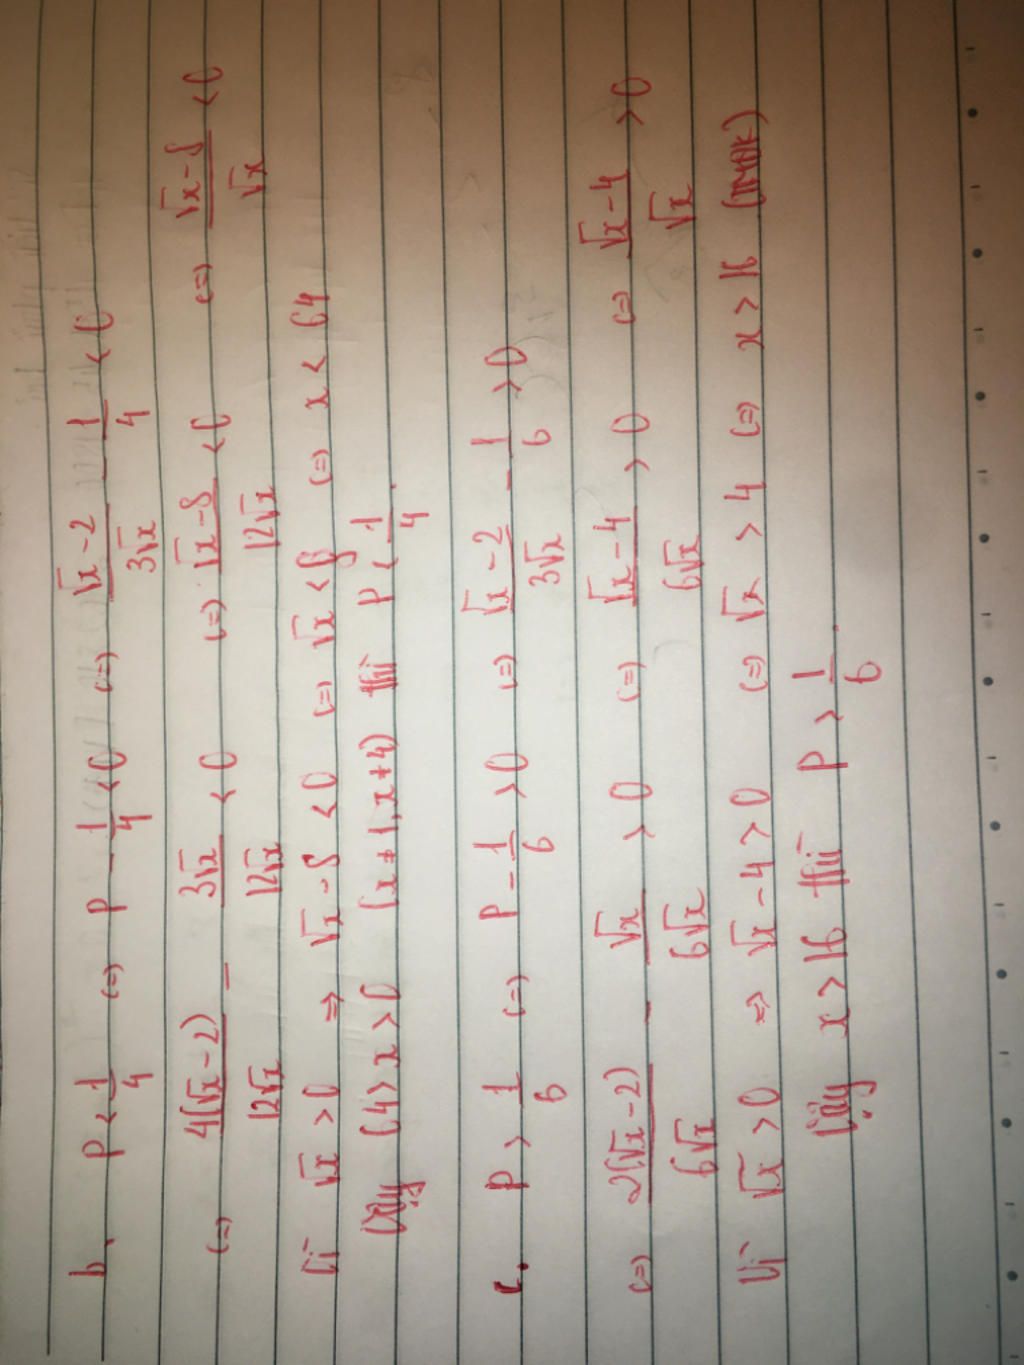 b. P < 1/4 (=) P - 1/4 < 0 (=) (√x - 2)/(3√x) - 1/4 < 0
(=) 4(√x - 2)/(12√x) - 3√x/(12√x) < 0 (=) (√x - 8)/(12√x) < 0 (=) (√x - 8)/√x < 0
Vì √x > 0 => √x - 8 < 0 (=) √x < 8 (=) x < 64
Vậy 64 > x > 0 (x ≠ 1, x ≠ 4) thì P < 1/4.
c. P > 1/6 (=) P - 1/6 > 0 (=) (√x - 2)/(3√x) - 1/6 > 0
(=) 2(√x - 2)/(6√x) - √x/(6√x) > 0 (=) (√x - 4)/(6√x) > 0 (=) (√x - 4)/√x > 0
Vì √x > 0 => √x - 4 > 0 (=) √x > 4 (=) x > 16
Vậy x > 16 thì P > 1/6.